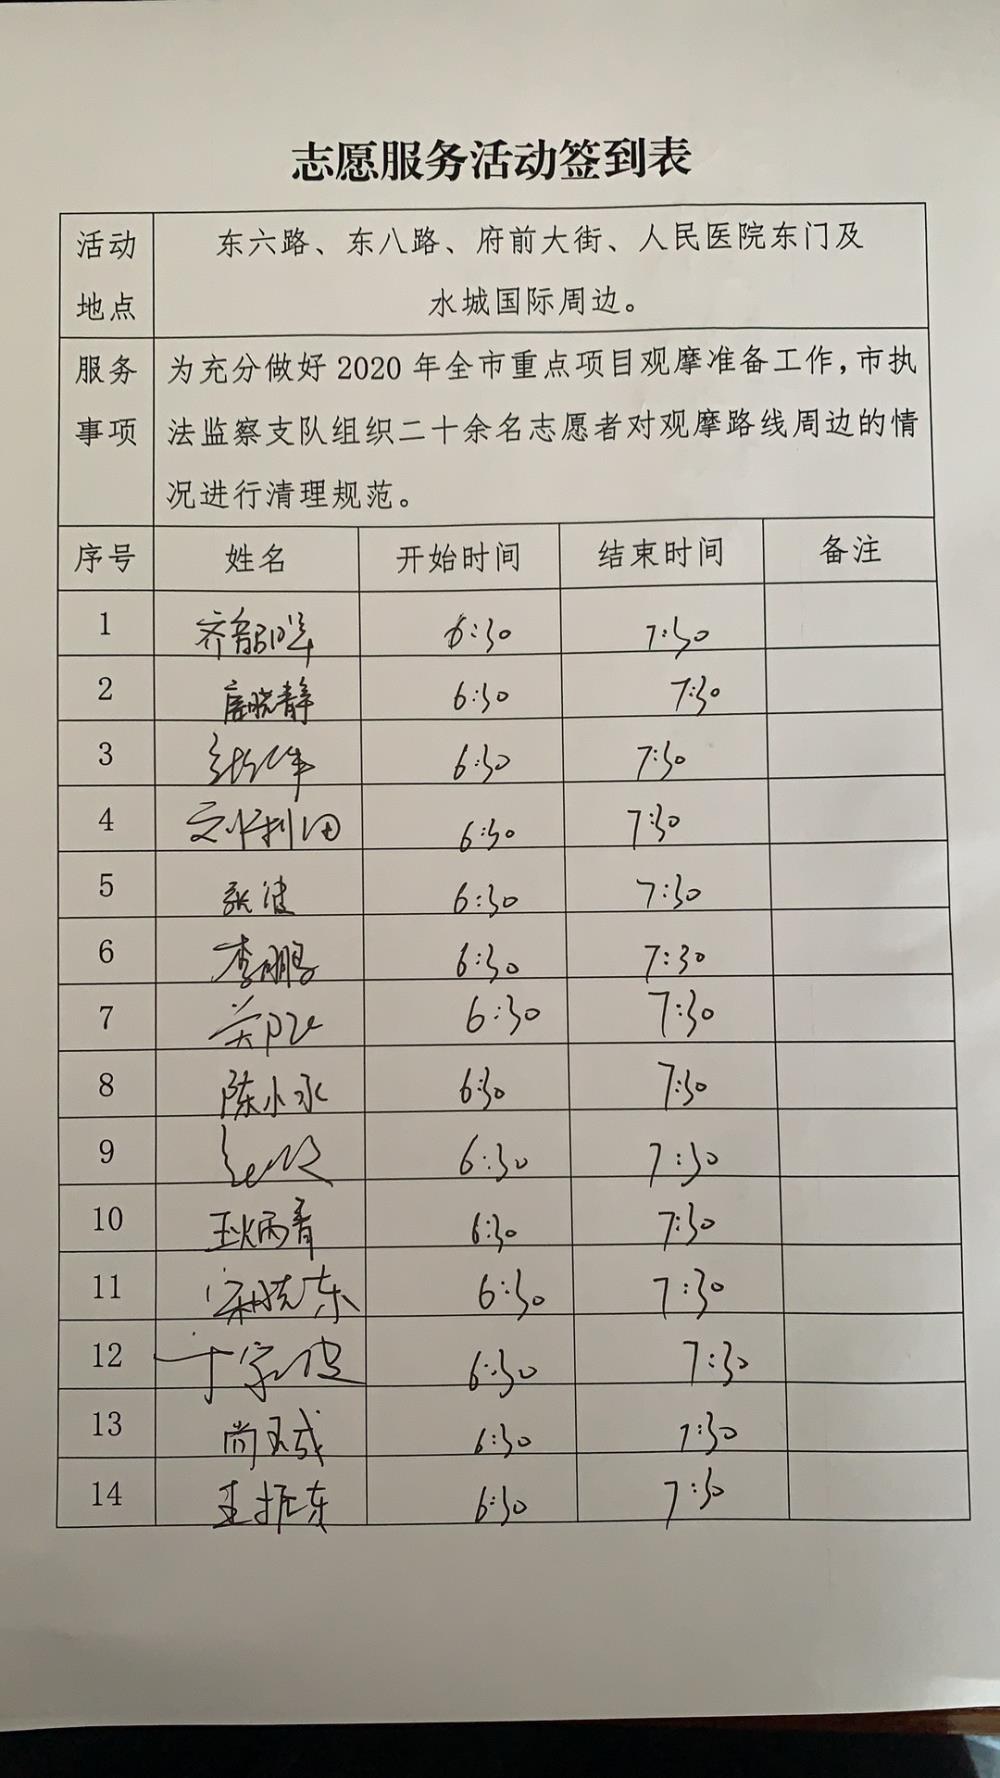 志愿服务活动签到表
活动地点 东六路、东八路、府前大街、人民医院东门及
水城国际周边。
服务事项 为充分做好2020年全市重点项目观摩准备工作,市执
法监察支队组织二十余名志愿者对观摩路线周边的情
况进行清理规范。
序号 姓名 开始时间 结束时间 备注
1 6:30 7:30
2 6:30 7:30
3 6:30 7:30
4 6:30 7:30
5 张波 6:30 7:30
6 李鹏 6:30 7:30
7 6:30 7:30
8 陈小永 6:30 7:30
9 6:30 7:30
10 6:30 7:30
11 宋晓东 6:30 7:30
12 6:30 7:30
13 尚玉成 6:30 7:30
14 王振东 6:30 7:30